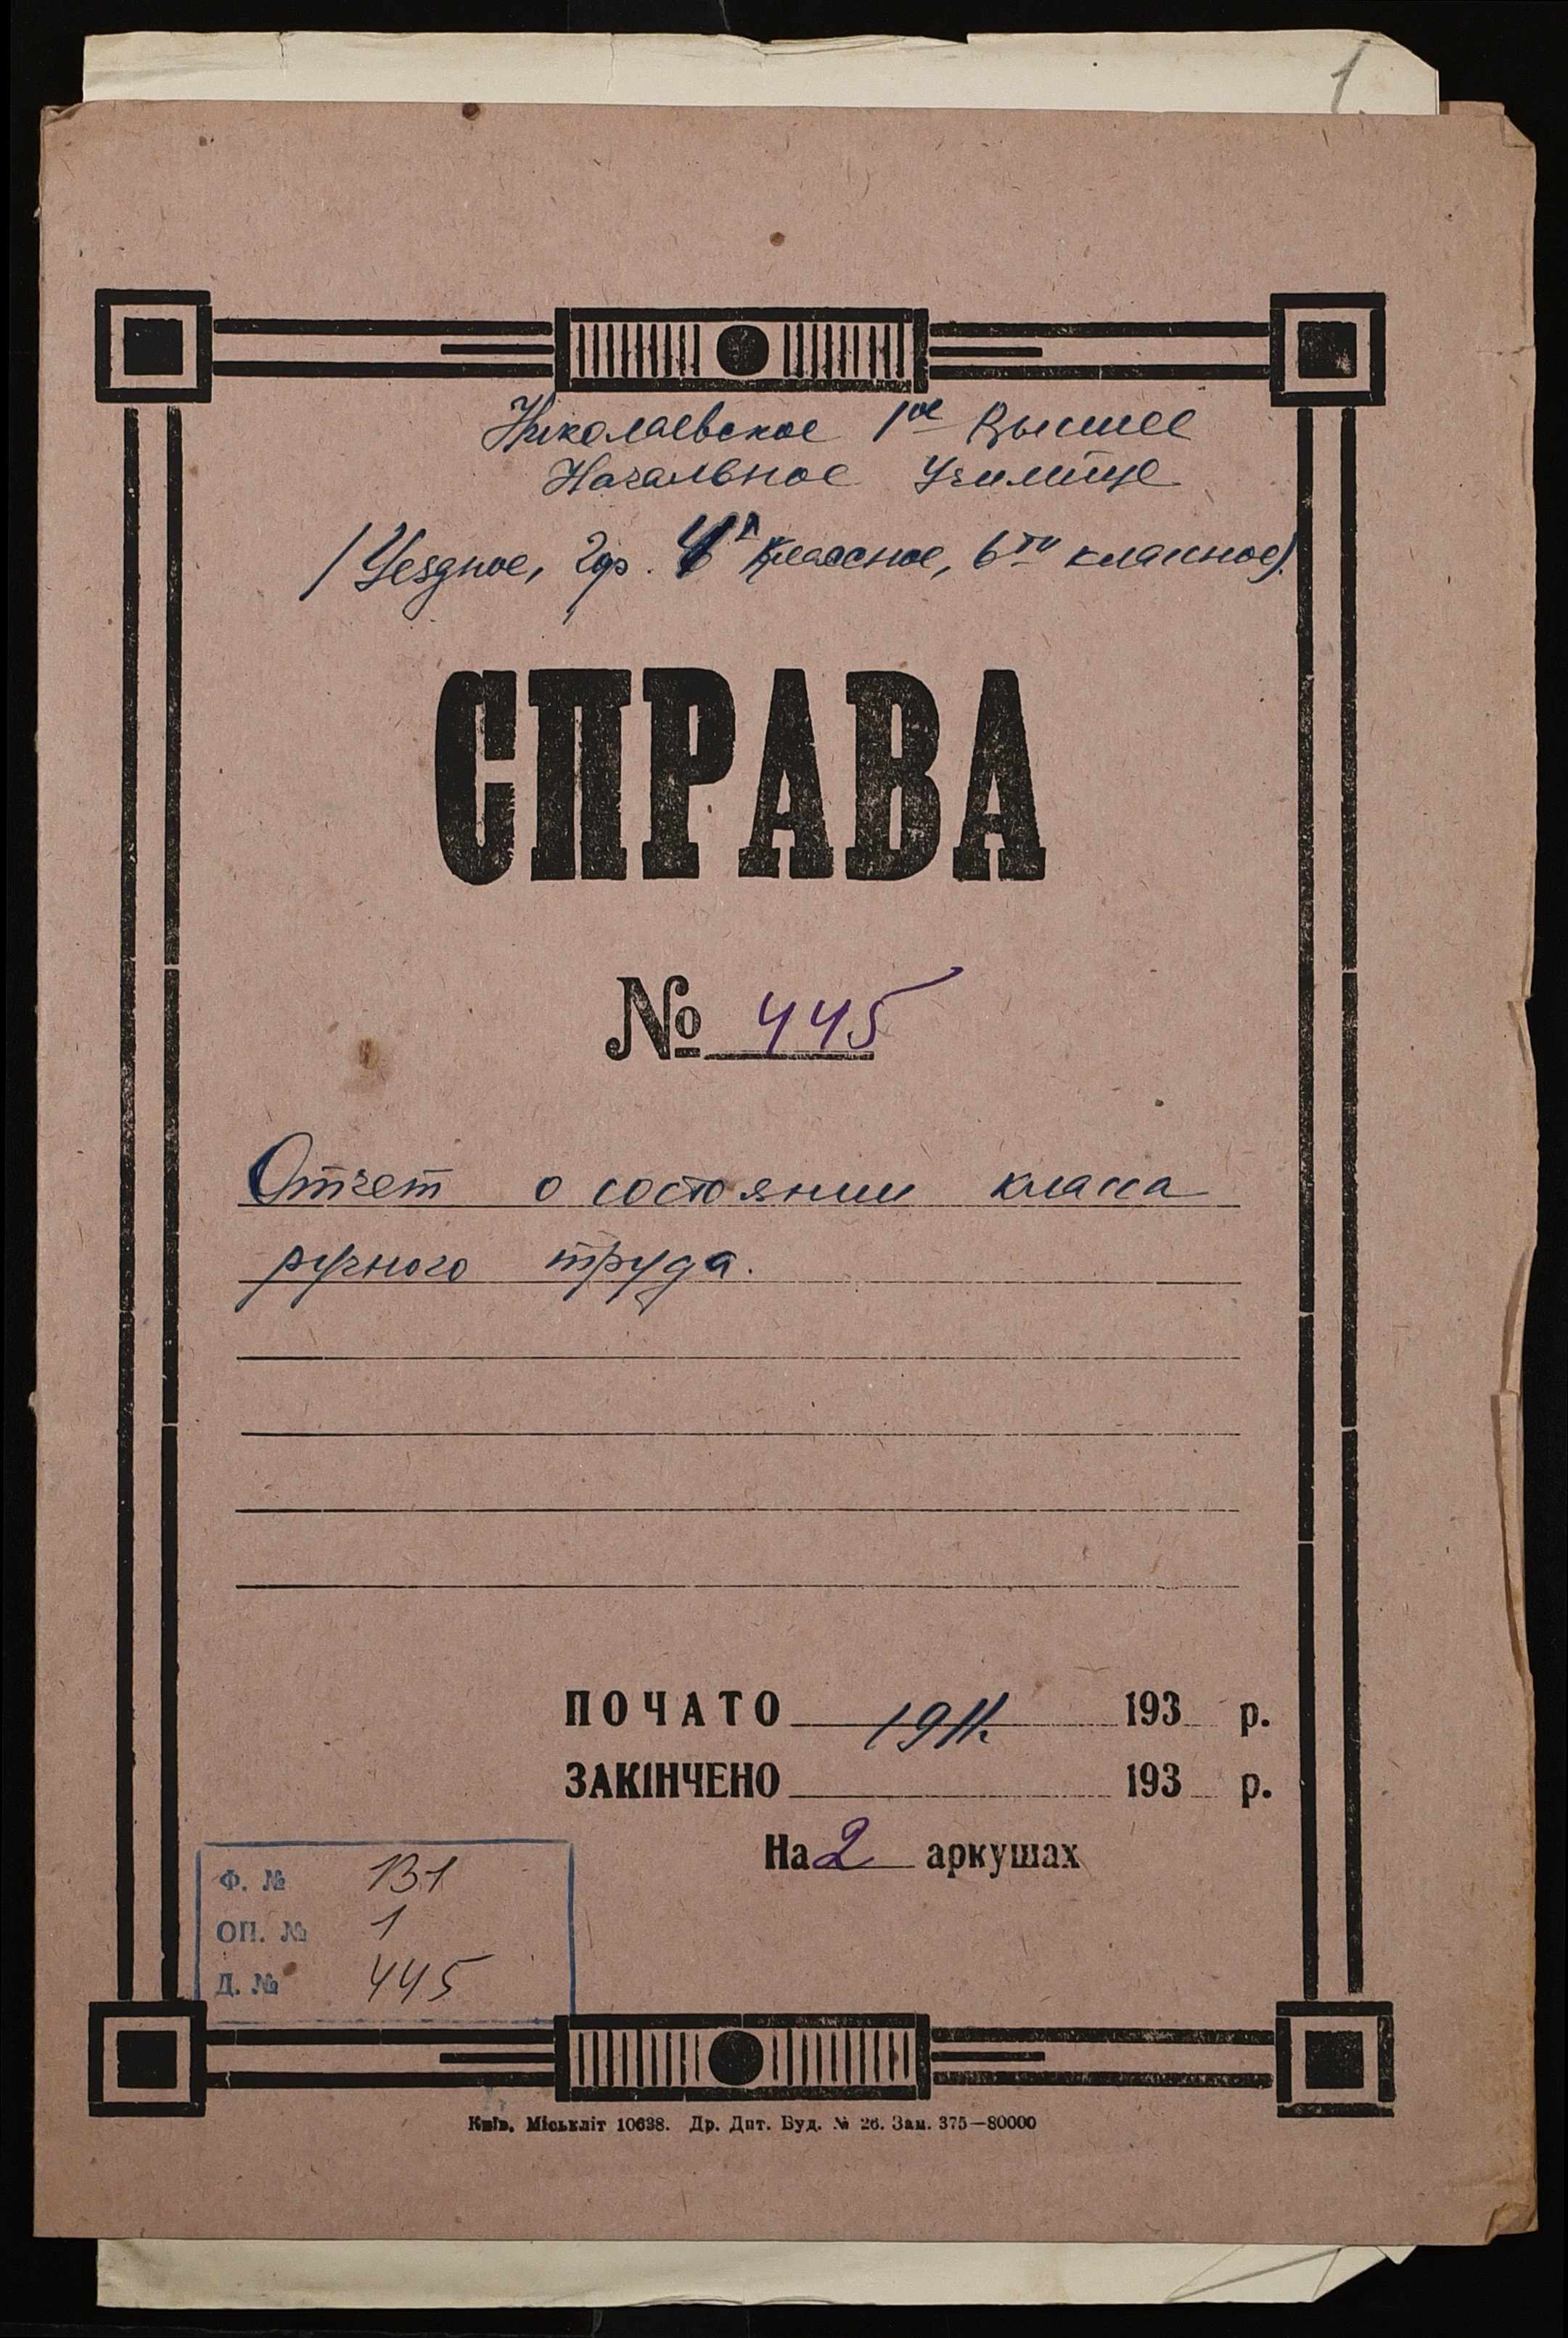 1
Николаевское 1ое Высшее
Начальное Училище
(Уездное, гор. 4х классное, 6ти классное).
СПРАВА
№ 445
Отчет о состоянии класса
ручного труда.
ПОЧАТО 1911. 193 р.
ЗАКІНЧЕНО 193 р.
На 2 аркушах
Ф. № 131
ОП. № 1
Д. № 445
Київ. Міськліт 10638. Др. Дит. Буд. № 26. Зам. 375—80000